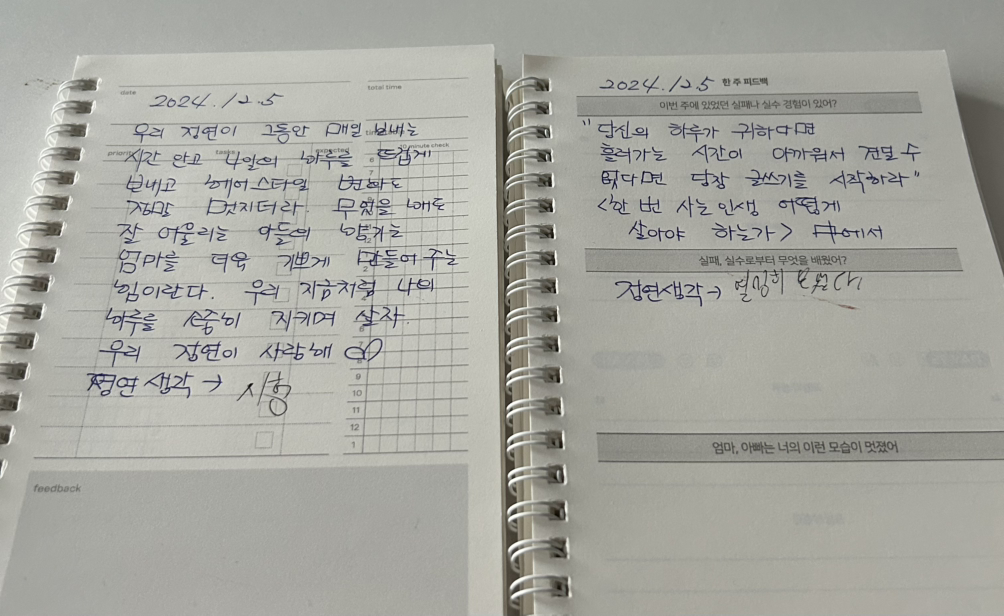 date
total time
2024.12.5
우리 정연이 그동안 매일 보내는
priority
tasks
expected
10 minute check
시간 안고 나일의 하루를 뜨겁게
보내고 헤어스타일 변화도
정말 멋지더라. 무엇을 해도
잘 어울리는 아들의
엄마를 더욱 기쁘게 만들어 주는
힘이란다. 우리 지금처럼 나의
하루를 소중히 지키며 살자.
우리 정연이 사랑해
정연생각 → 시흥
6
7
8
9
10
11
12
1
feedback
2024.12.5 한 주 피드백
이번 주에 있었던 실패나 실수 경험이 있어?
"당신의 하루가 귀하다면
흘러가는 시간이 아까워서 견딜 수
없다면 당장 글쓰기를 시작하라"
<한 번 사는 인생 어떻게
살아야 하는가> 中에서
실패, 실수로부터 무엇을 배웠어?
정연생각→ 열심히
엄마, 아빠는 너의 이런 모습이 멋졌어